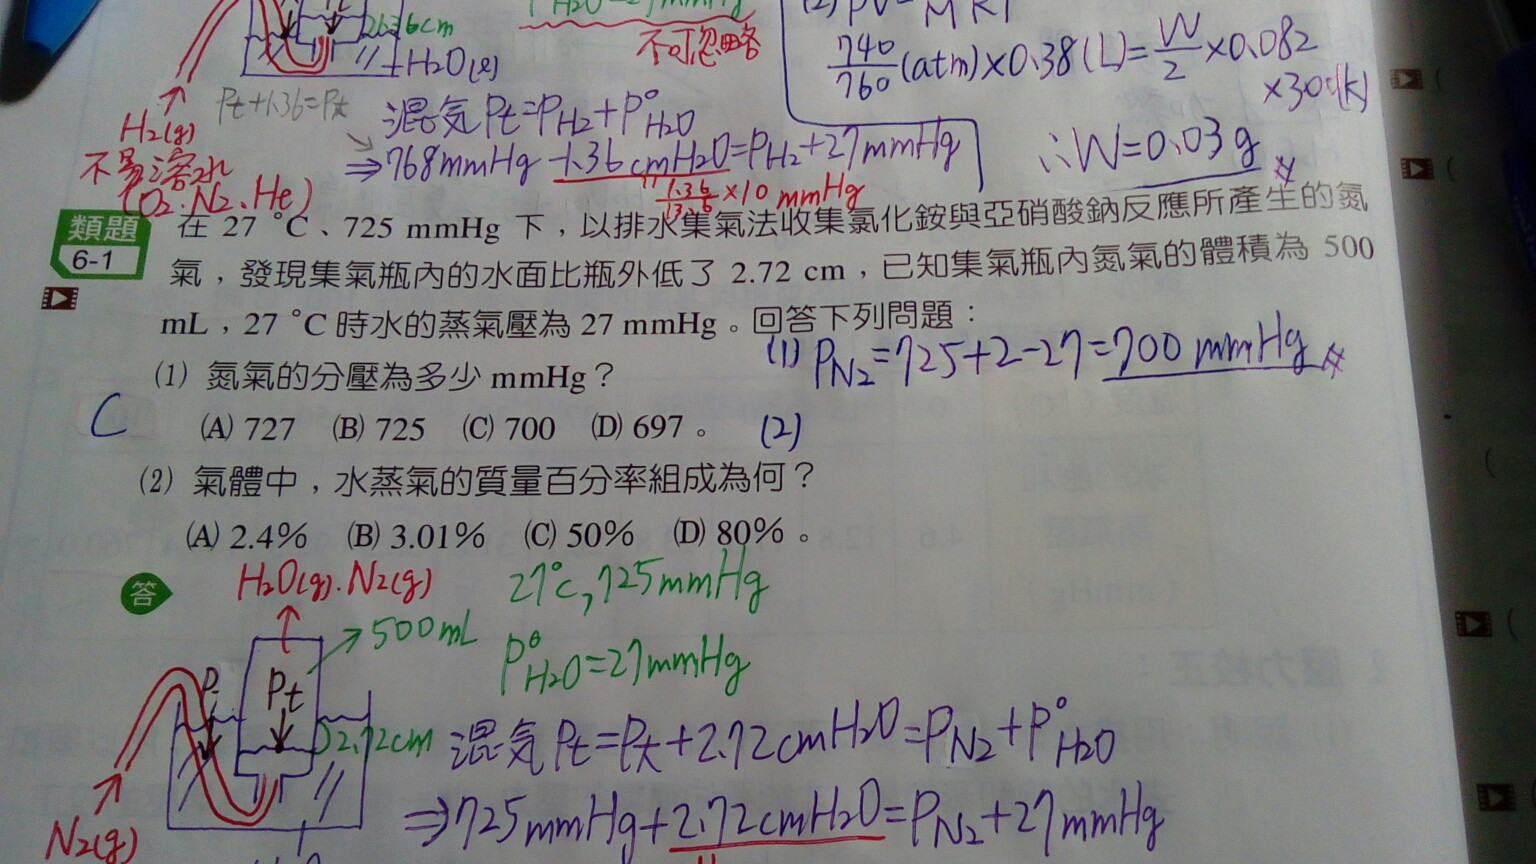 2.36cm
H2O(l)
不可忽略
740/760(atm)×0.38(L)=W/2×0.082
×300(K)
∴W=0.03g
H2(g)
Pt+1.36=Pt
混気Pt=PH2+P°H2O
⇒768mmHg-1.36cmH2O=PH2+27mmHg
1.36/13.6×10mmHg
不易溶水
(O2、N2、He)
類題
6-1
在 27 °C、725 mmHg 下，以排水集氣法收集氯化銨與亞硝酸鈉反應所產生的氮
氣，發現集氣瓶內的水面比瓶外低了 2.72 cm，已知集氣瓶內氮氣的體積為 500
mL，27 °C 時水的蒸氣壓為 27 mmHg。回答下列問題：
(1) 氮氣的分壓為多少 mmHg？
(1) PN2=725+2-27=700 mmHg
C
(A) 727 (B) 725 (C) 700 (D) 697。
(2)
(2) 氣體中，水蒸氣的質量百分率組成為何？
(A) 2.4% (B) 3.01% (C) 50% (D) 80%。
答
H2O(g).N2(g)
27°C,725mmHg
500mL
P°H2O=27mmHg
Pt
2.72cm
混気Pt=Pt+2.72cmH2O=PN2+P°H2O
⇒725mmHg+2.72cmH2O=PN2+27mmHg
N2(g)